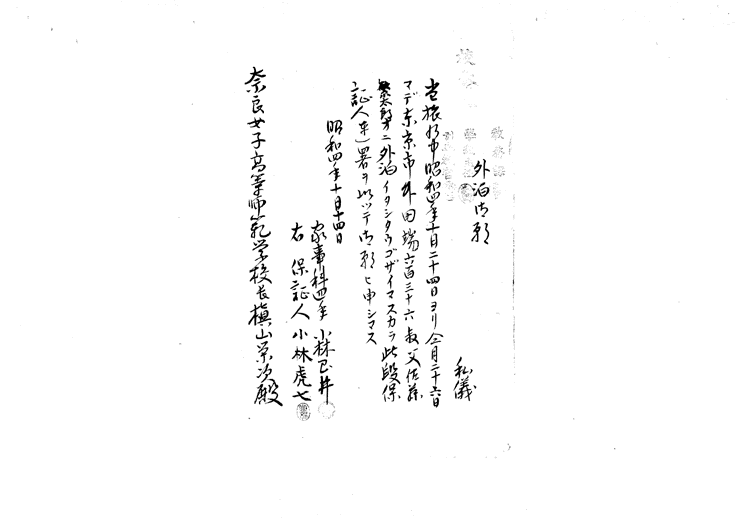 外泊御願
私儀
昭和四年十月二十四日ヨリ仝月二十六日
マデ東京市外田端六百三十六叔父佐藤
方ニ外泊イタシタウゴザイマスカラ此段保
証人連署ヲ以ツテ御願ヒ申シマス
昭和四年十月十四日
家事科四年 小林
右保証人 小林虎七
奈良女子高等師範学校長槇山栄次殿